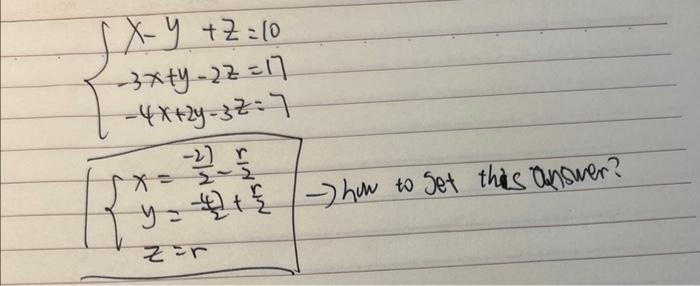 x - y + z = 10
-3x + y - 2z = 17
-4x + 2y - 3z = 7
x = -27/2 - r/2
y = -47/2 + r/2
z = r
→ how to get this answer?